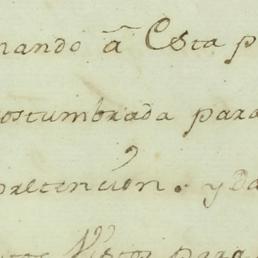 nando â Esta p
ostumbrada para
pretencion. y Da
Vistos para